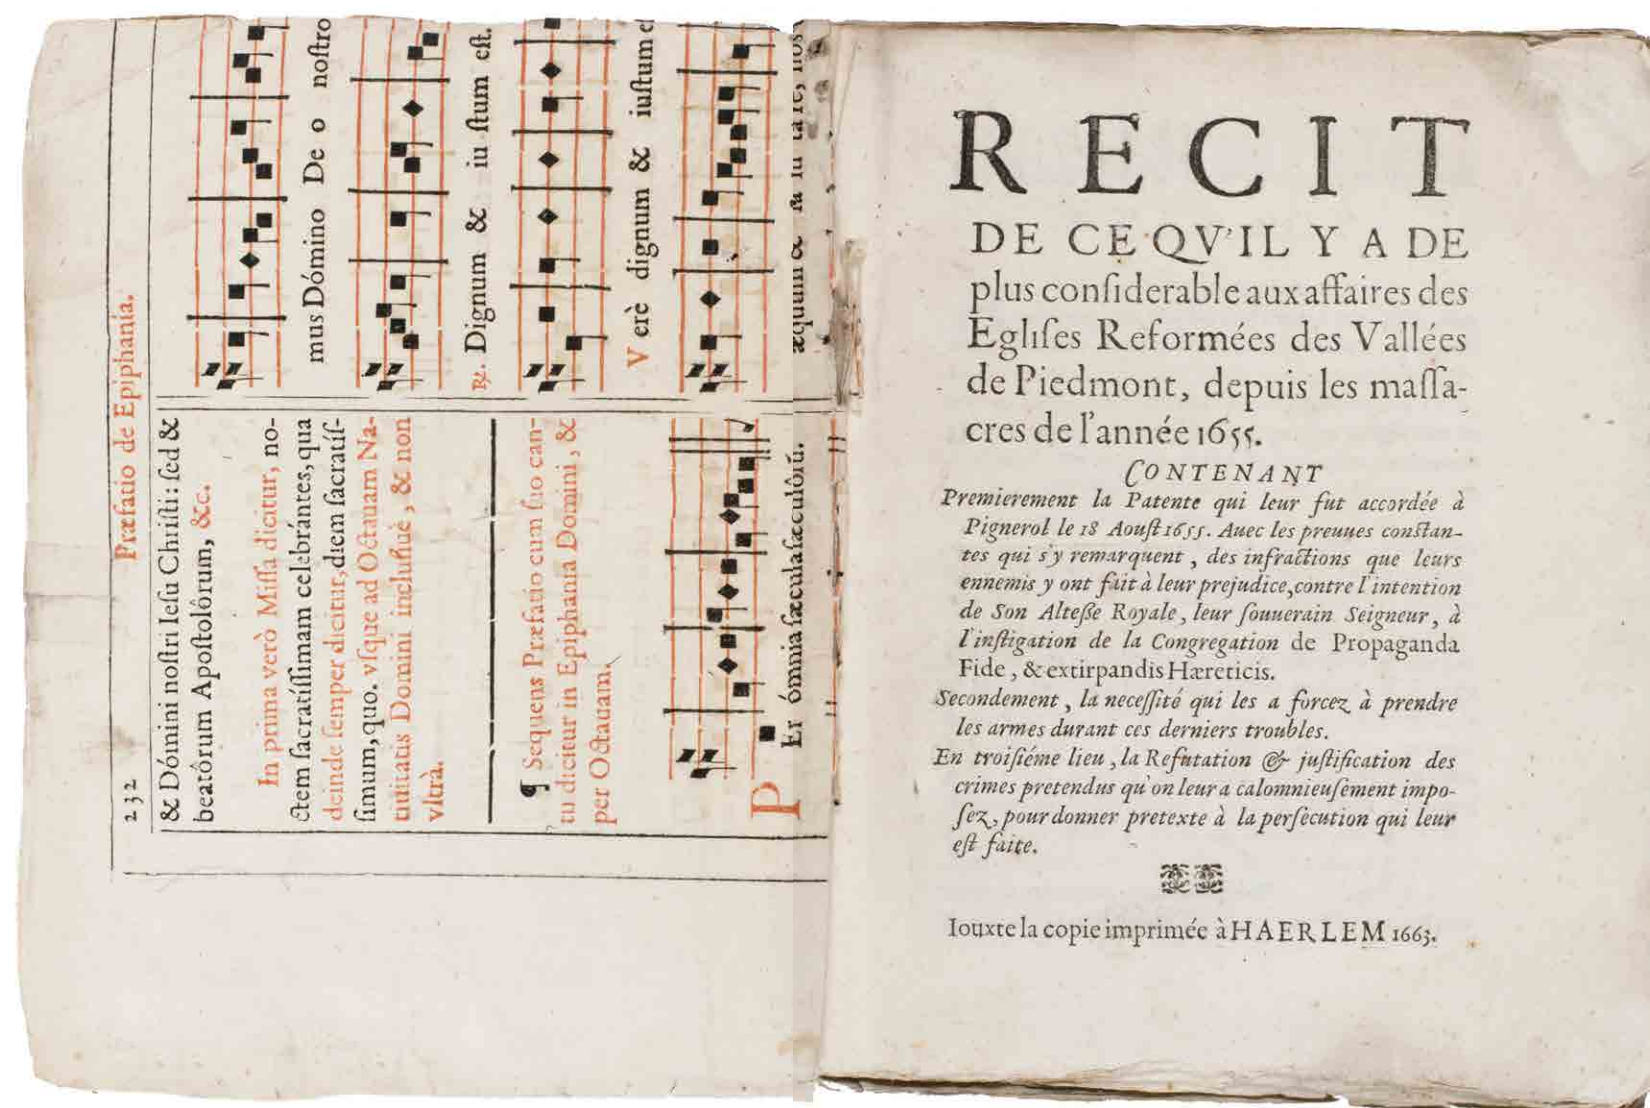 232
Præfatio de Epiphania.
& Dómini noſtri Ieſu Chriſti: ſed &
beatôrum Apoſtolôrum, &c.
In prima verò Miſſa dicitur, no-
ctem ſacratíſſimam celebrántes, qua
deinde ſemper dicitur, diem ſacratíſ-
ſimum, quo. vſque ad Octauam Na-
tiuitatis Domini incluſiuè, & non
vltrà.
¶ Sequens Præfatio cum ſuo can-
tu dicitur in Epiphania Domini, &
per Octauam.
P Er ómnia ſæcula ſæculôrũ.
mus Dómino De o noſtro
℟. Dignum & iu ſtum eſt.
V erè dignum & iuſtum e
æquum &
RECIT
DE CE QV'IL Y A DE
plus conſiderable aux affaires des
Egliſes Reformées des Vallées
de Piedmont, depuis les maſſa-
cres de l'année 1655.
CONTENANT
Premierement la Patente qui leur fut accordée à
Pignerol le 18 Aouſt 1655. Auec les preuues conſtan-
tes qui s'y remarquent, des infractions que leurs
ennemis y ont fait à leur prejudice, contre l'intention
de Son Alteſſe Royale, leur ſouuerain Seigneur, à
l'inſtigation de la Congregation de Propaganda
Fide, & extirpandis Hæreticis.
Secondement, la neceſſité qui les a forcez à prendre
les armes durant ces derniers troubles.
En troiſiéme lieu, la Refutation & juſtification des
crimes pretendus qu'on leur a calomnieuſement impo-
ſez, pour donner pretexte à la perſecution qui leur
eſt faite.
Iouxte la copie imprimée à HAERLEM 1663.